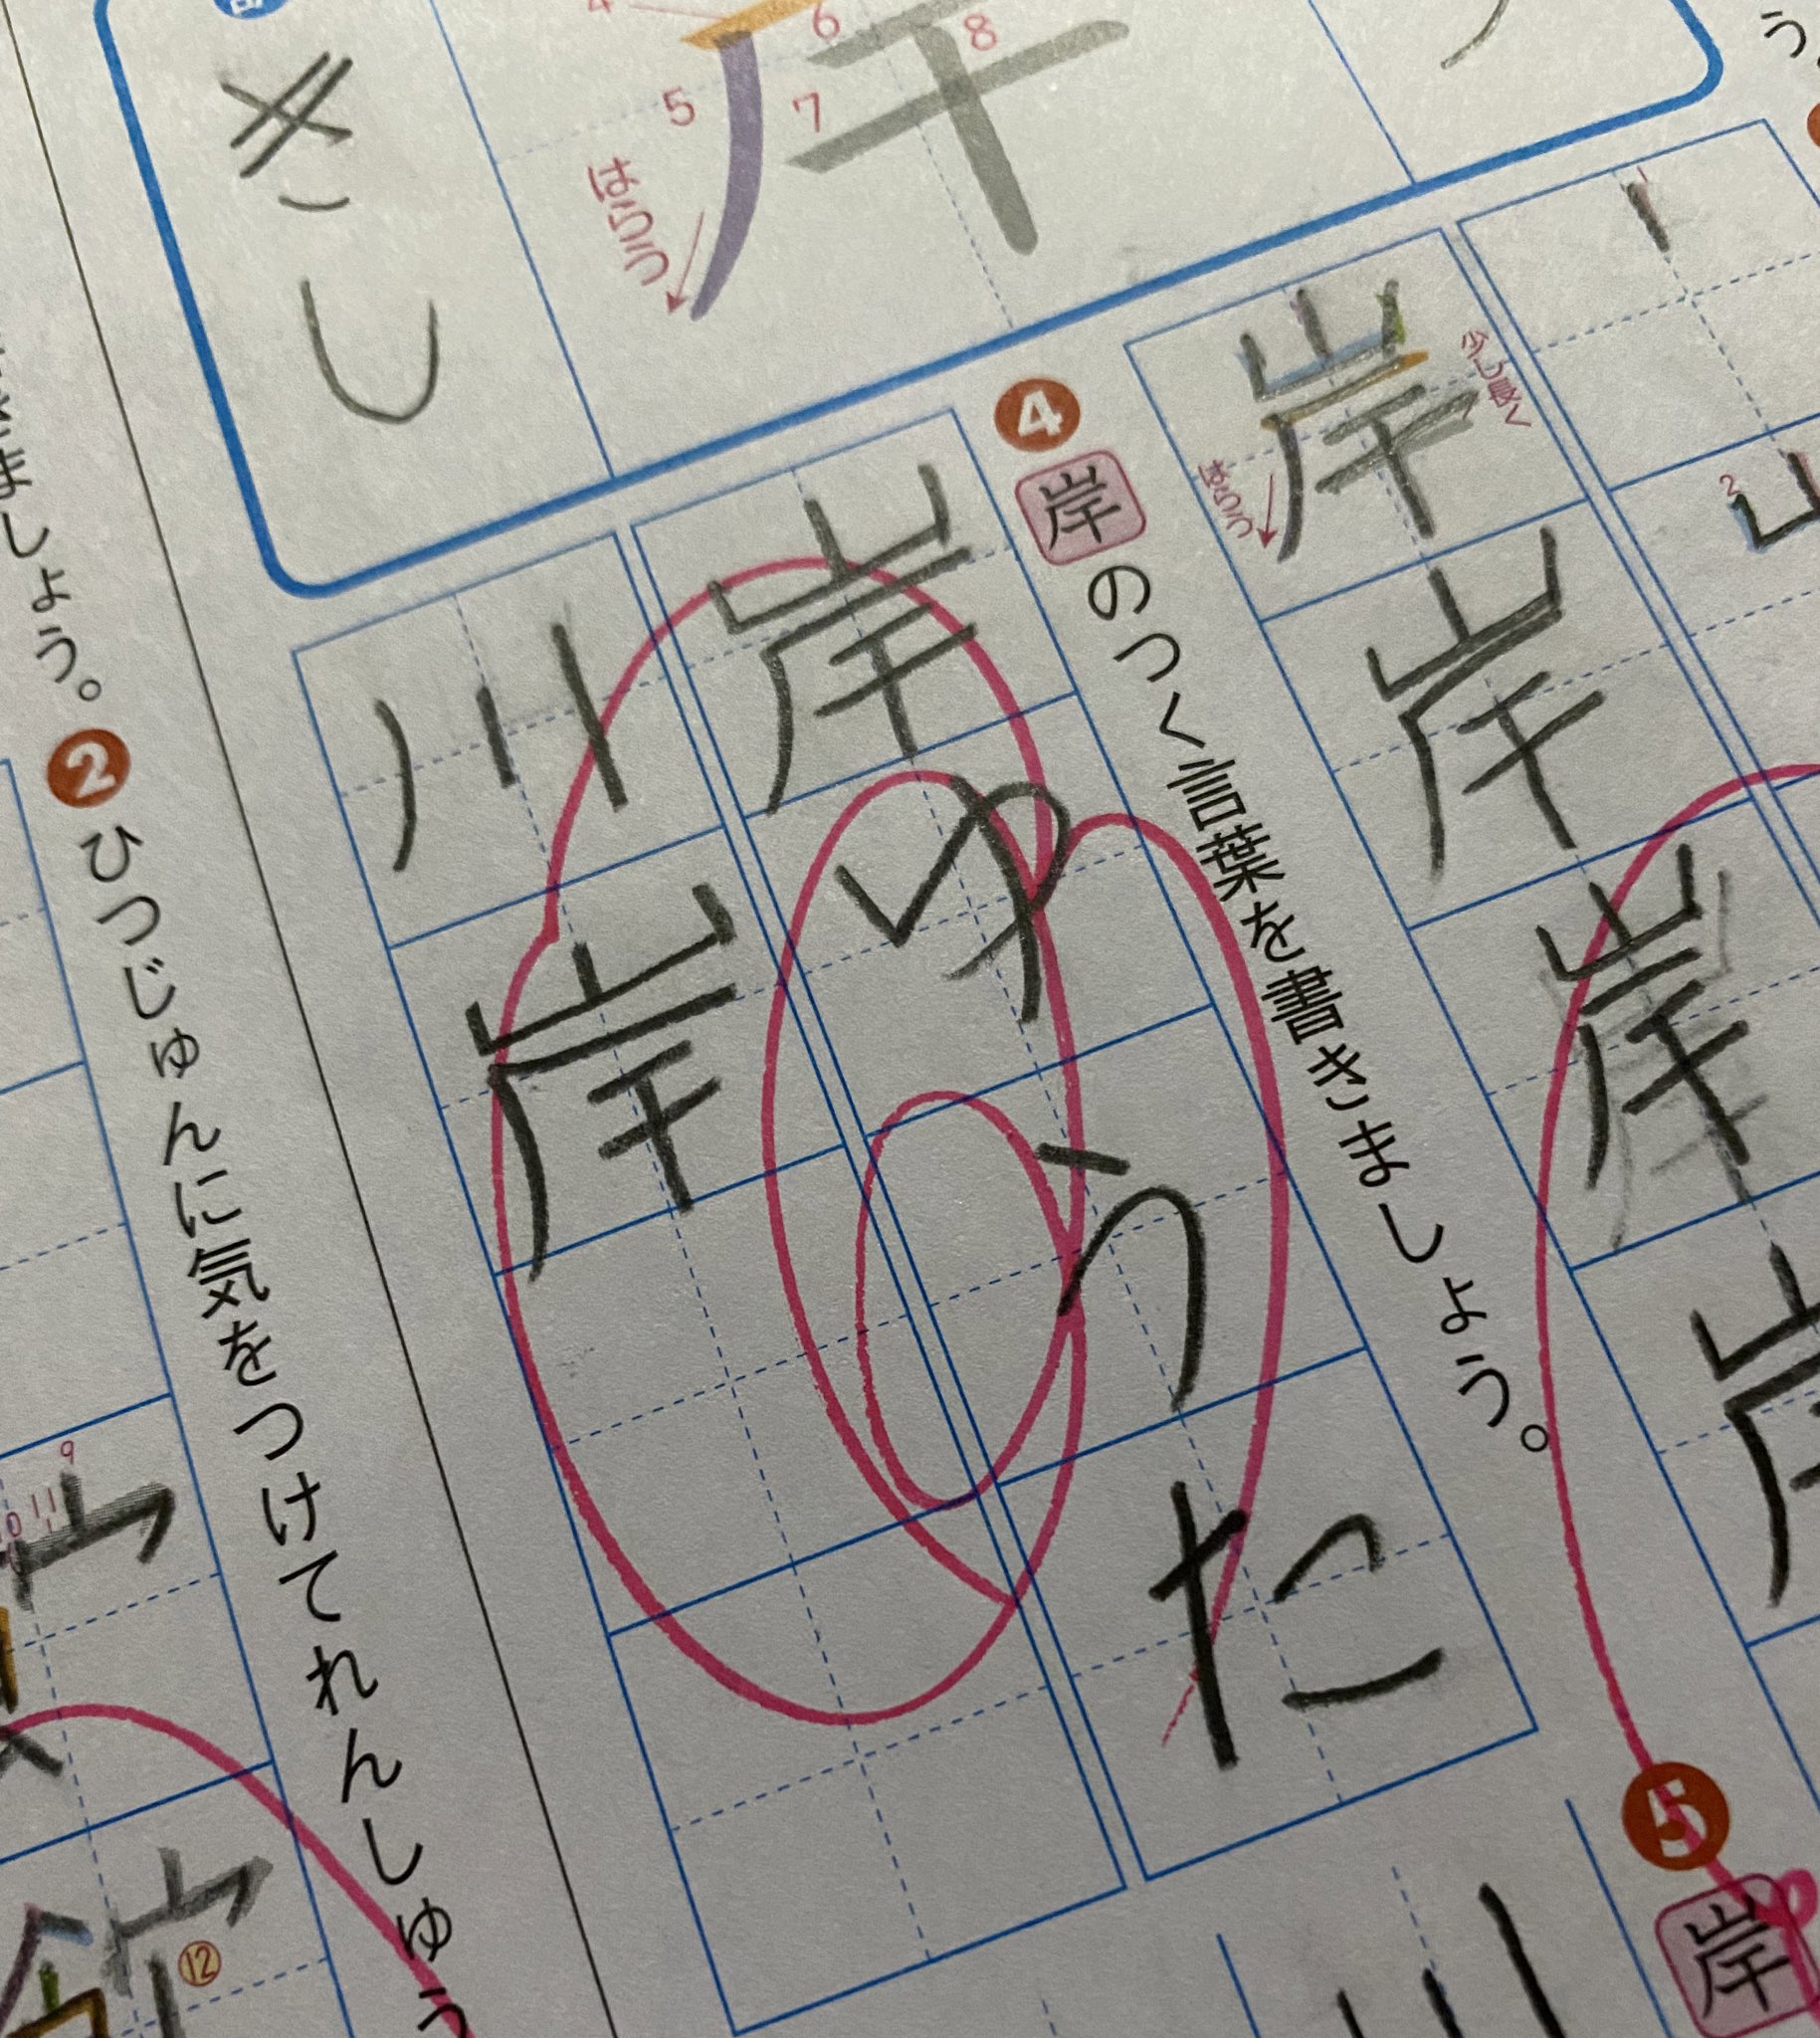 う
少し長く
はらう
岸
岸
岸
岸
❹岸のつく言葉を書きましょう。
岸
ゆ
う
た
川
岸
4
5
6
7
8
はらう
きし
❺
岸
川
1
2
ましょう。
❷ひつじゅんに気をつけてれんしゅう
9
10
11
⑫